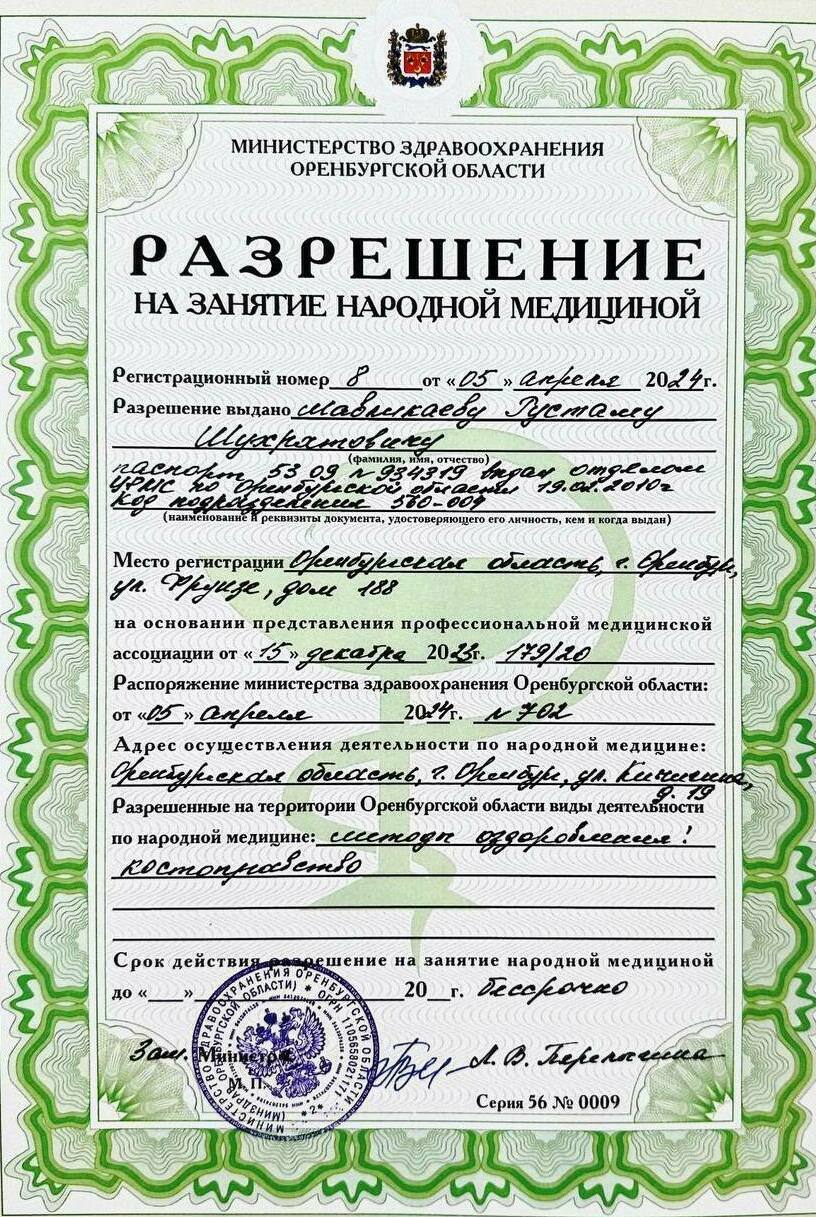 МИНИСТЕРСТВО ЗДРАВООХРАНЕНИЯ
ОРЕНБУРГСКОЙ ОБЛАСТИ
РАЗРЕШЕНИЕ
НА ЗАНЯТИЕ НАРОДНОЙ МЕДИЦИНОЙ
Регистрационный номер 8 от «05» апреля 2024г.
Разрешение выдано Мавликаеву Рустаму
Шухратовичу
(фамилия, имя, отчество)
паспорт 53 09 № 934319 выдан отделом
УФМС по Оренбургской области 19.02.2010г
код подразделения 560-004
(наименование и реквизиты документа, удостоверяющего его личность, кем и когда выдан)
Место регистрации Оренбургская область, г. Оренбург,
ул. Фрунзе, дом 188
на основании представления профессиональной медицинской
ассоциации от «15» декабря 2023г. 179/20
Распоряжение министерства здравоохранения Оренбургской области:
от «05» апреля 2024г. № 702
Адрес осуществления деятельности по народной медицине:
Оренбургская область, г. Оренбург, ул. Кичигина,
д. 19
Разрешенные на территории Оренбургской области виды деятельности
по народной медицине: методы оздоровления:
костоправство
Срок действия разрешение на занятие народной медициной
до «__»____20__г. бессрочно
Зам. Министр
М. П.
Л. В. Перепелкина
Серия 56 № 0009
МИНИСТЕРСТВО ЗДРАВООХРАНЕНИЯ ОРЕНБУРГСКОЙ ОБЛАСТИ
(МИНЗДРАВ ОРЕНБУРГСКОЙ ОБЛАСТИ) * ОГРН 1105658021171
*2*